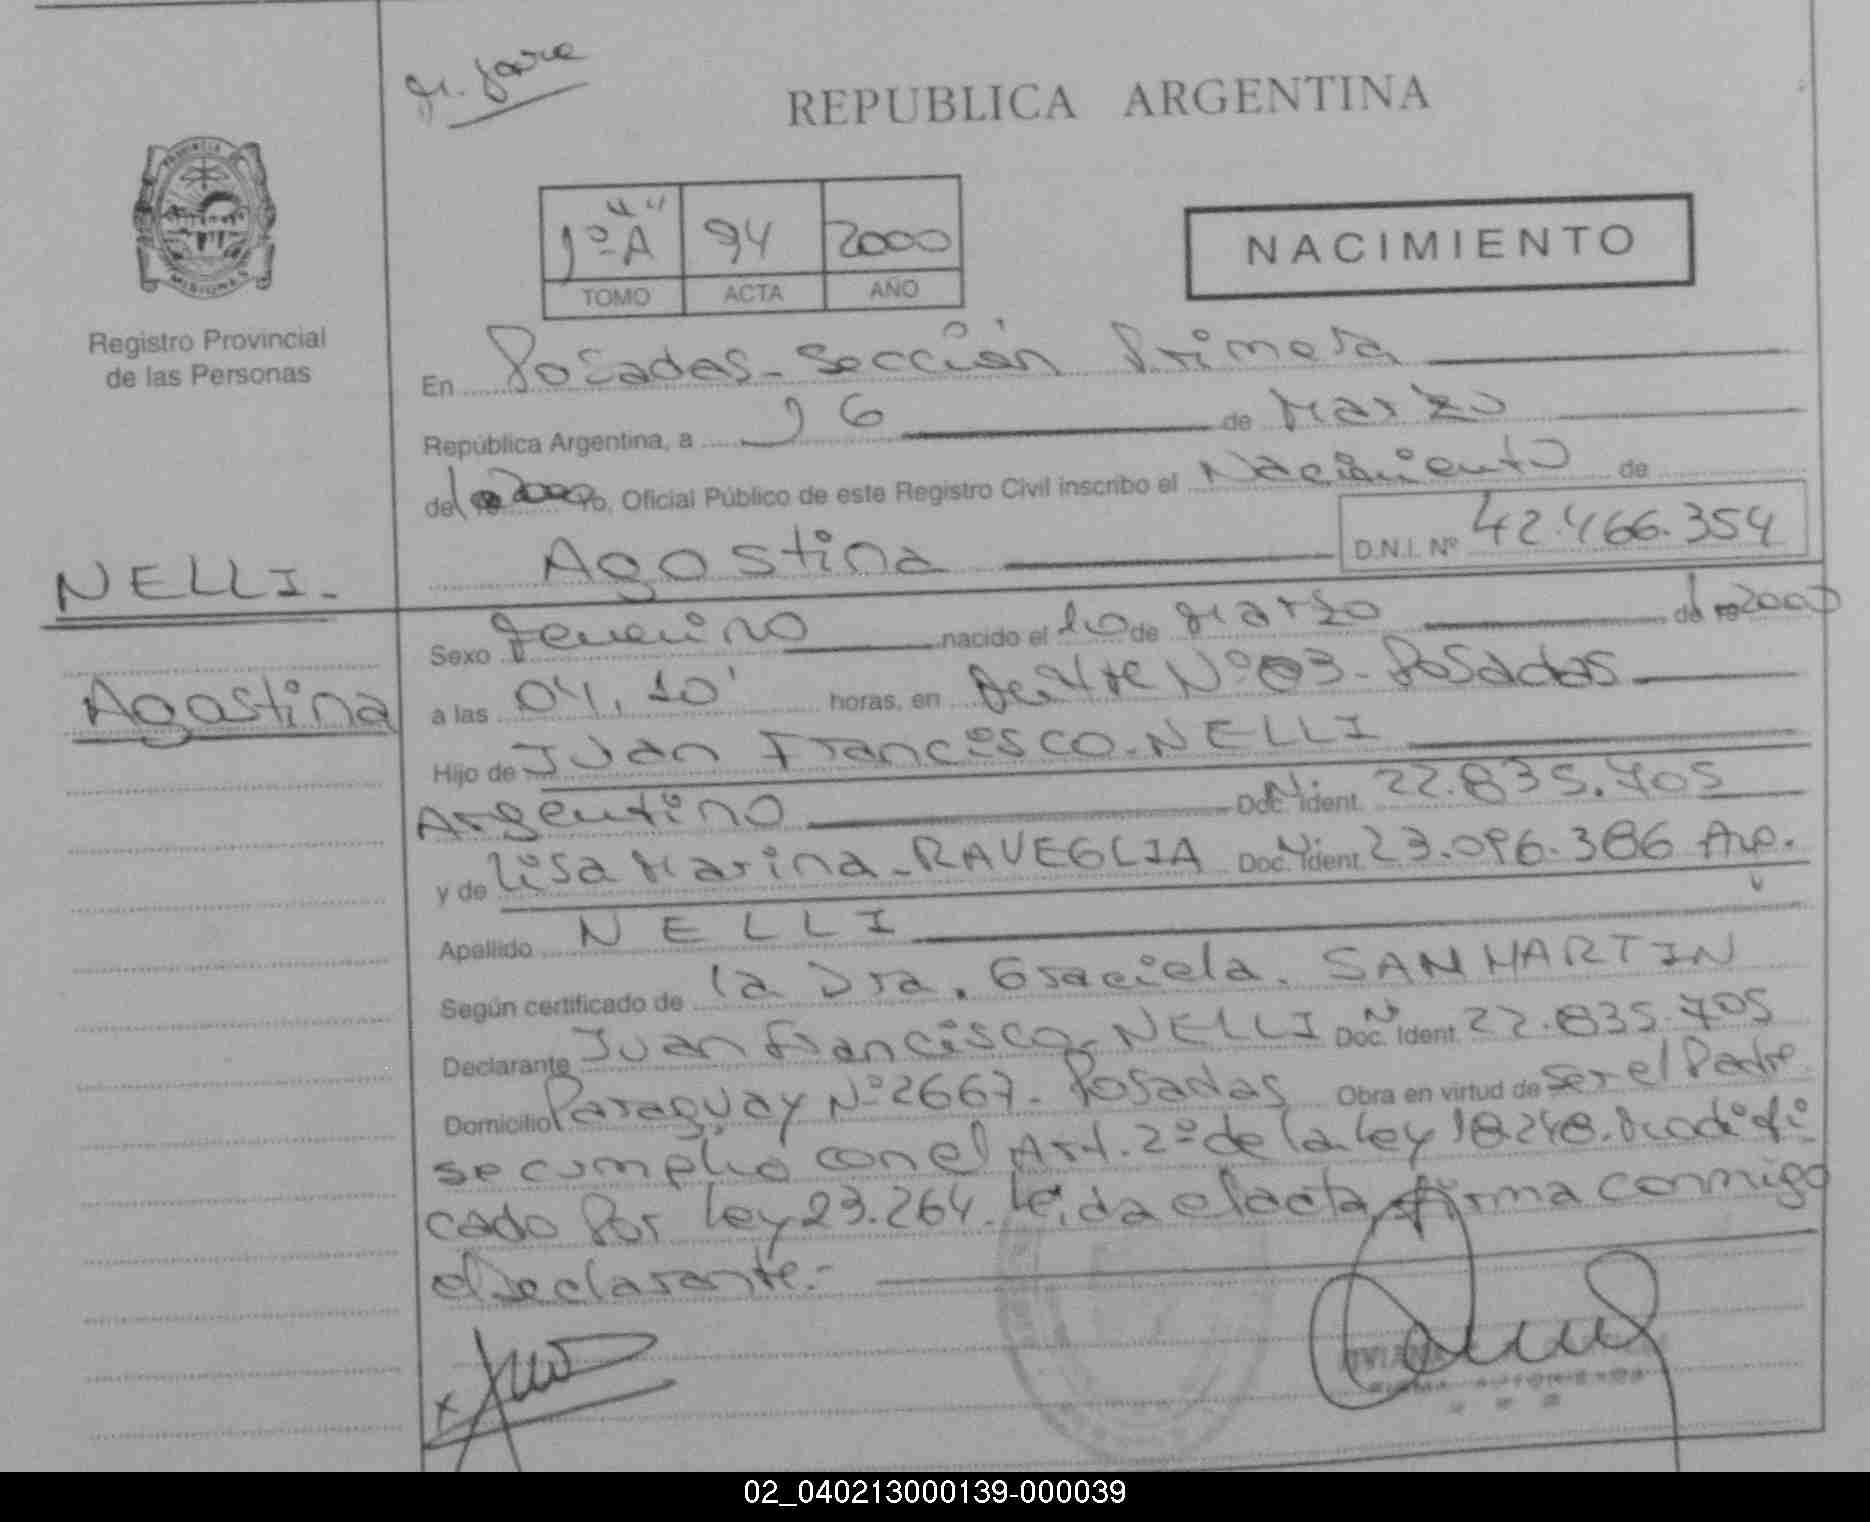 REPUBLICA ARGENTINA
PROVINCIA
MISIONES
Registro Provincial
de las Personas
1º "A" 94 2000
TOMO ACTA AÑO
NACIMIENTO
En Posadas - Sección Primera
República Argentina, a 16 de Marzo
del 2000 Yo, Oficial Público de este Registro Civil inscribo el Nacimiento de
Agostina D.N.I. Nº 42.466.354
NELLI.-
Agostina
Sexo femenino nacido el 10 de Marzo del 2000
a las 04,10' horas, en Nº 03 - Posadas
Hijo de Juan Francisco - NELLI
Argentino Doc. Ident. 22.835.705
y de Lisa Marina - RAVEGLIA Doc. Ident. 23.096.386 Arg.
Apellido NELLI
Según certificado de la Dra. Graciela. SAN MARTIN
Declarante Juan Francisco - NELLI Doc. Ident. 22.835.705
Domicilio Paraguay Nº 2667 - Posadas Obra en virtud de ser el Padre
se cumplió con el Art. 2º de la Ley 18.248. modifi
cado Por Ley 23.264. Leida el acta, firma conmigo
el Declarante.-
02_040213000139-000039